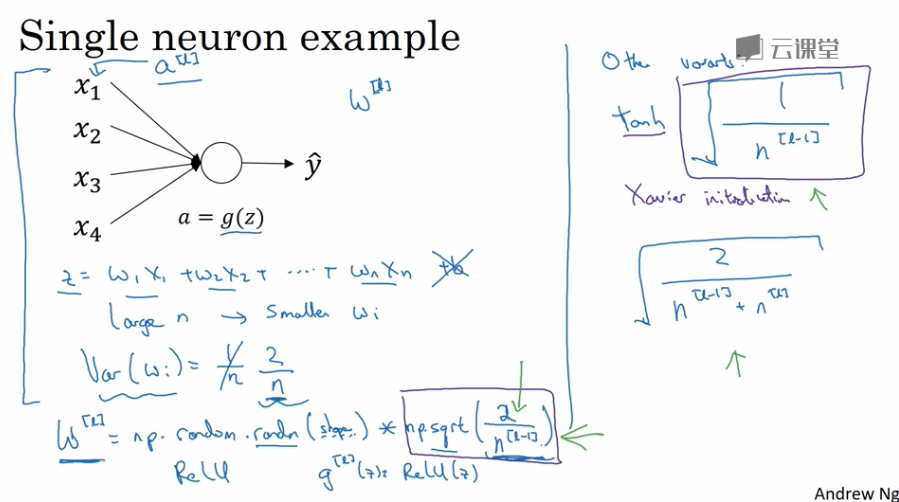 Single neuron example
云课堂
x₁
x₂
x₃
x₄
a^[l]
w^[l]
ŷ
a = g(z)
z = w₁x₁ + w₂x₂ + ... + wₙxₙ +b
Large n → Smaller wᵢ
Var(wᵢ) = 1/n 2/n
W^[l] = np.random.randn(shape) * np.sqrt(2/n^[l-1])
ReLU g^[l](z) = ReLU(z)
Other variants:
tanh √(1/n^[l-1])
Xavier initialization
√(2/(n^[l-1] + n^[l]))
Andrew Ng